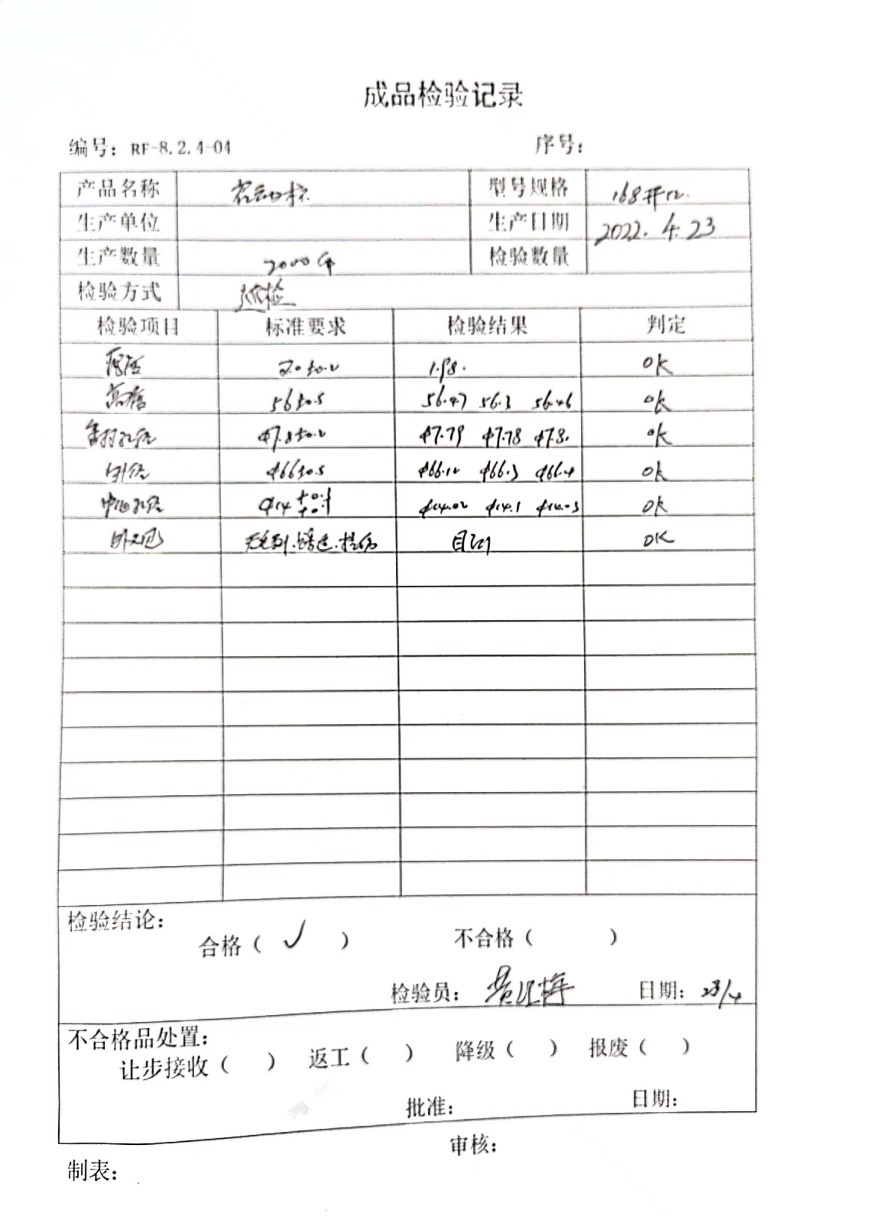 成品检验记录
编号：RF-8.2.4-04 序号：
产品名称 型号规格 168开口.
生产单位 生产日期 2022.4.23
生产数量 2000个 检验数量
检验方式 巡检
检验项目 标准要求 检验结果 判定
厚度 2.0±0.2 1.98. OK
高度 56±0.5 56.47 56.3 56.46 OK
翻孔径 φ7.8±0.2 φ7.79 φ7.78 φ7.8. OK
外径 φ66±0.5 φ66.12 φ66.3 φ66.4 OK
中心孔径 φ14 φ14.02 φ14.1 φ14.03 OK
外观 无毛刺. 目测 OK
检验结论：
合格（ ✓ ） 不合格（ ）
检验员： 日期：23/4
不合格品处置：
让步接收（ ） 返工（ ） 降级（ ） 报废（ ）
批准： 日期：
审核：
制表：